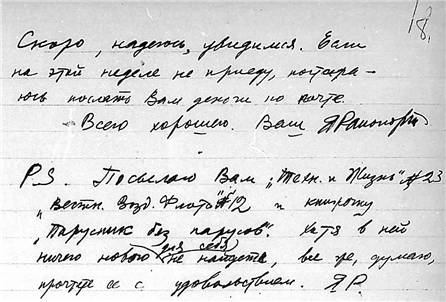 18.
Скоро, надеюсь, увидимся. Если
на этой неделе не приеду, постара-
юсь послать Вам деньги по почте.
Всего хорошего. Ваш ЯРапопорт
P.S. Посылаю Вам „Техн. и Жизнь" № 23
„Вестн. Возд. Флота" № 12 и книжку
„Парусник без парусов". Хотя в ней
ничего нового для себя не найдете, все же, думаю,
прочтете ее с удовольствием. ЯР.